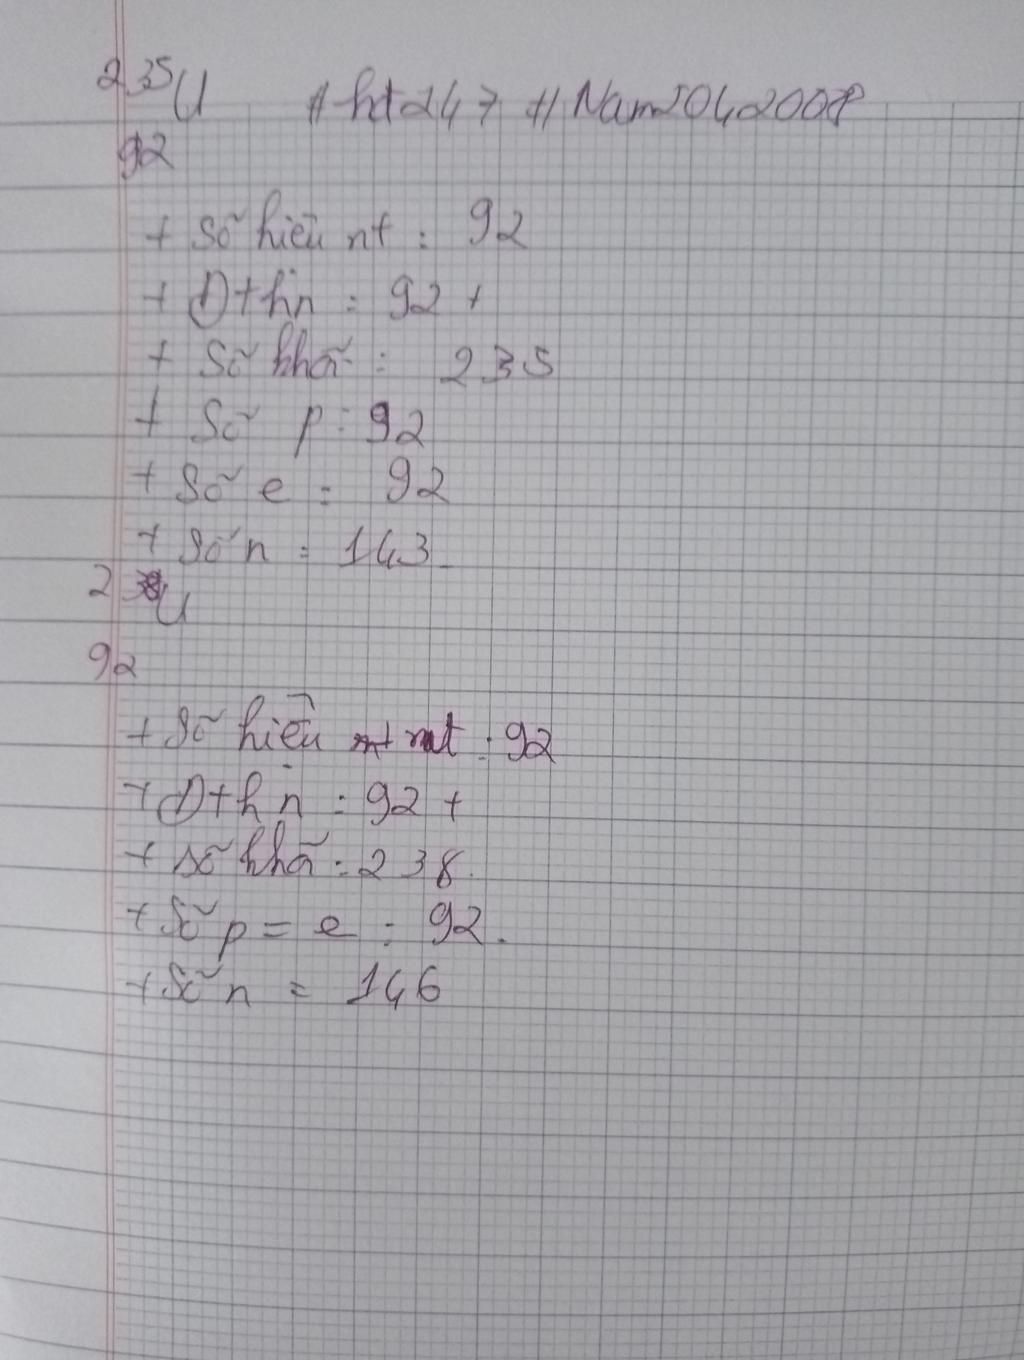 235
U # ht247 # Nam5042008
92
+ Số hiệu nt : 92
+ Đthn : 92 +
+ Số khối : 235
+ Số p : 92
+ Số e : 92
+ Số n : 143
238
U
92
+ Số hiệu nt : 92
+ Đthn : 92 +
+ số khối : 238.
+ Số p = e : 92.
+ Số n = 146